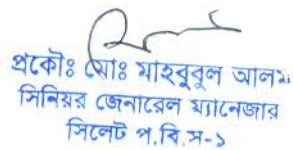 প্রকৌঃ মোঃ মাহবুবুল আলম
সিনিয়র জেনারেল ম্যানেজার
সিলেট প.বি.স-১